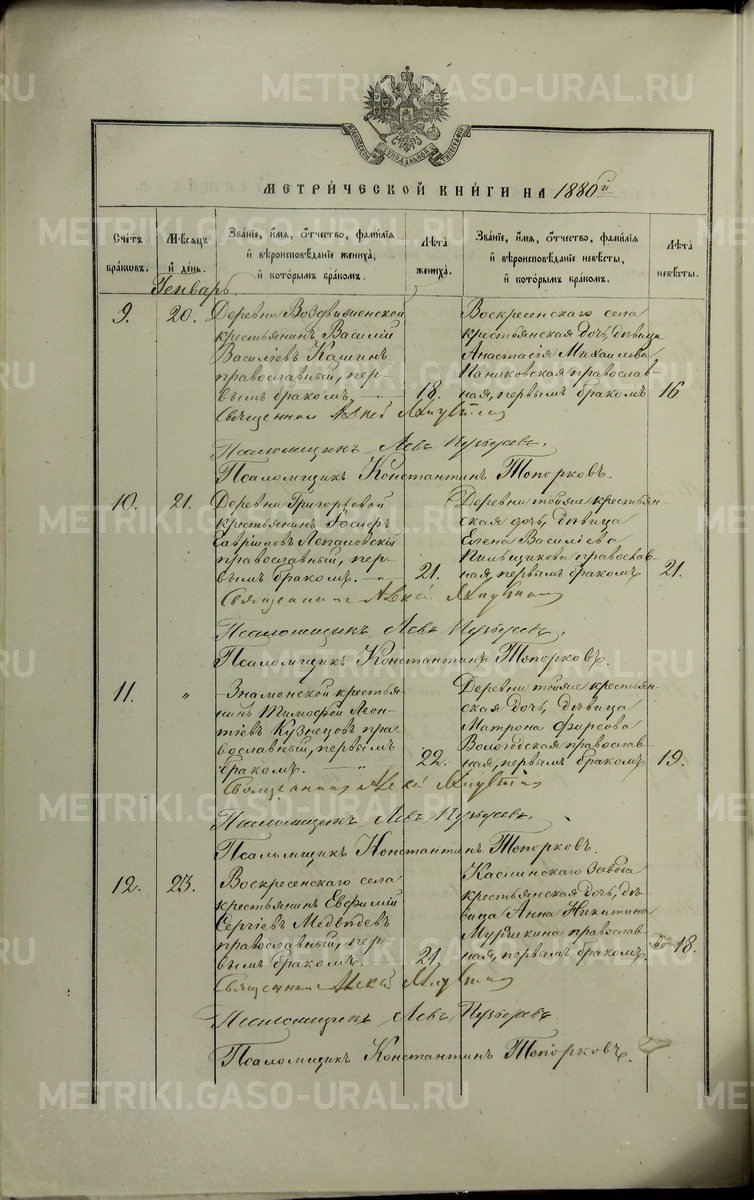 МОСКОВСКОЙ СѴНОДАЛЬНОЙ ТИПОГРАФІИ
МЕТРИ́ЧЕСКОЙ КНИ́ГИ НА 1880й
Сче́тъ бра́кωвъ.
Мѣ́сяцъ и҆ де́нь.
Зва́ніе, и҆́мя, ѻ҆́тчество, фами́лія и҆ вѣроисповѣ́даніе жениха̀, и҆ кото́рымъ бра́комъ.
Лѣ́та жениха̀.
Зва́ніе, и҆́мя, ѻ҆́тчество, фами́лія и҆ вѣроисповѣ́даніе невѣ́сты, и҆ кото́рымъ бра́комъ.
Лѣ́та невѣ́сты.
Генварь
9. 20. Деревни Воздвиженской
крестьянинъ Василій
Василіевъ Кашинъ
православный, пер-
вымъ бракомъ. 18.
Воскресенскаго села
крестьянская дочь, дѣвица
Анастасія Михаилова
Паниковская православ-
ная, первымъ бракомъ 16
Священникъ
Псаломщикъ Левъ
Псаломщикъ Константинъ Топорковъ.
10. 21. Деревни Григорьевой
крестьянинъ Іосифъ
Гавріиловъ
православный, пер-
вымъ бракомъ. 21.
Деревни тойже крестьян-
ская дочь, дѣвица
Елена Василіева
Пильщикова православ-
ная, первымъ бракомъ 21.
Священникъ
Псаломщикъ Левъ
Псаломщикъ Константинъ Топорковъ.
11. „ Знаменской крестья-
нинъ Тимофей Леон-
тіевъ Кузнецовъ пра-
вославный, первымъ
бракомъ. 22.
Деревни тойже крестьян-
ская дочь, дѣвица
Матрона Фирсова
Вологодская православ-
ная, первымъ бракомъ 19.
Священникъ
Псаломщикъ Левъ
Псаломщикъ Константинъ Топорковъ.
12. 23. Воскресенскаго села
крестьянинъ Евфимій
Сергіевъ Медвѣдевъ
православный, пер-
вымъ бракомъ. 21.
Каслинскаго Завода
крестьянская дочь, дѣ-
вица Анна Никитина
православ-
ная, первымъ бракомъ 18.
Священникъ
Псаломщикъ Левъ
Псаломщикъ Константинъ Топорковъ.
METRIKI.GASO-URAL.RU